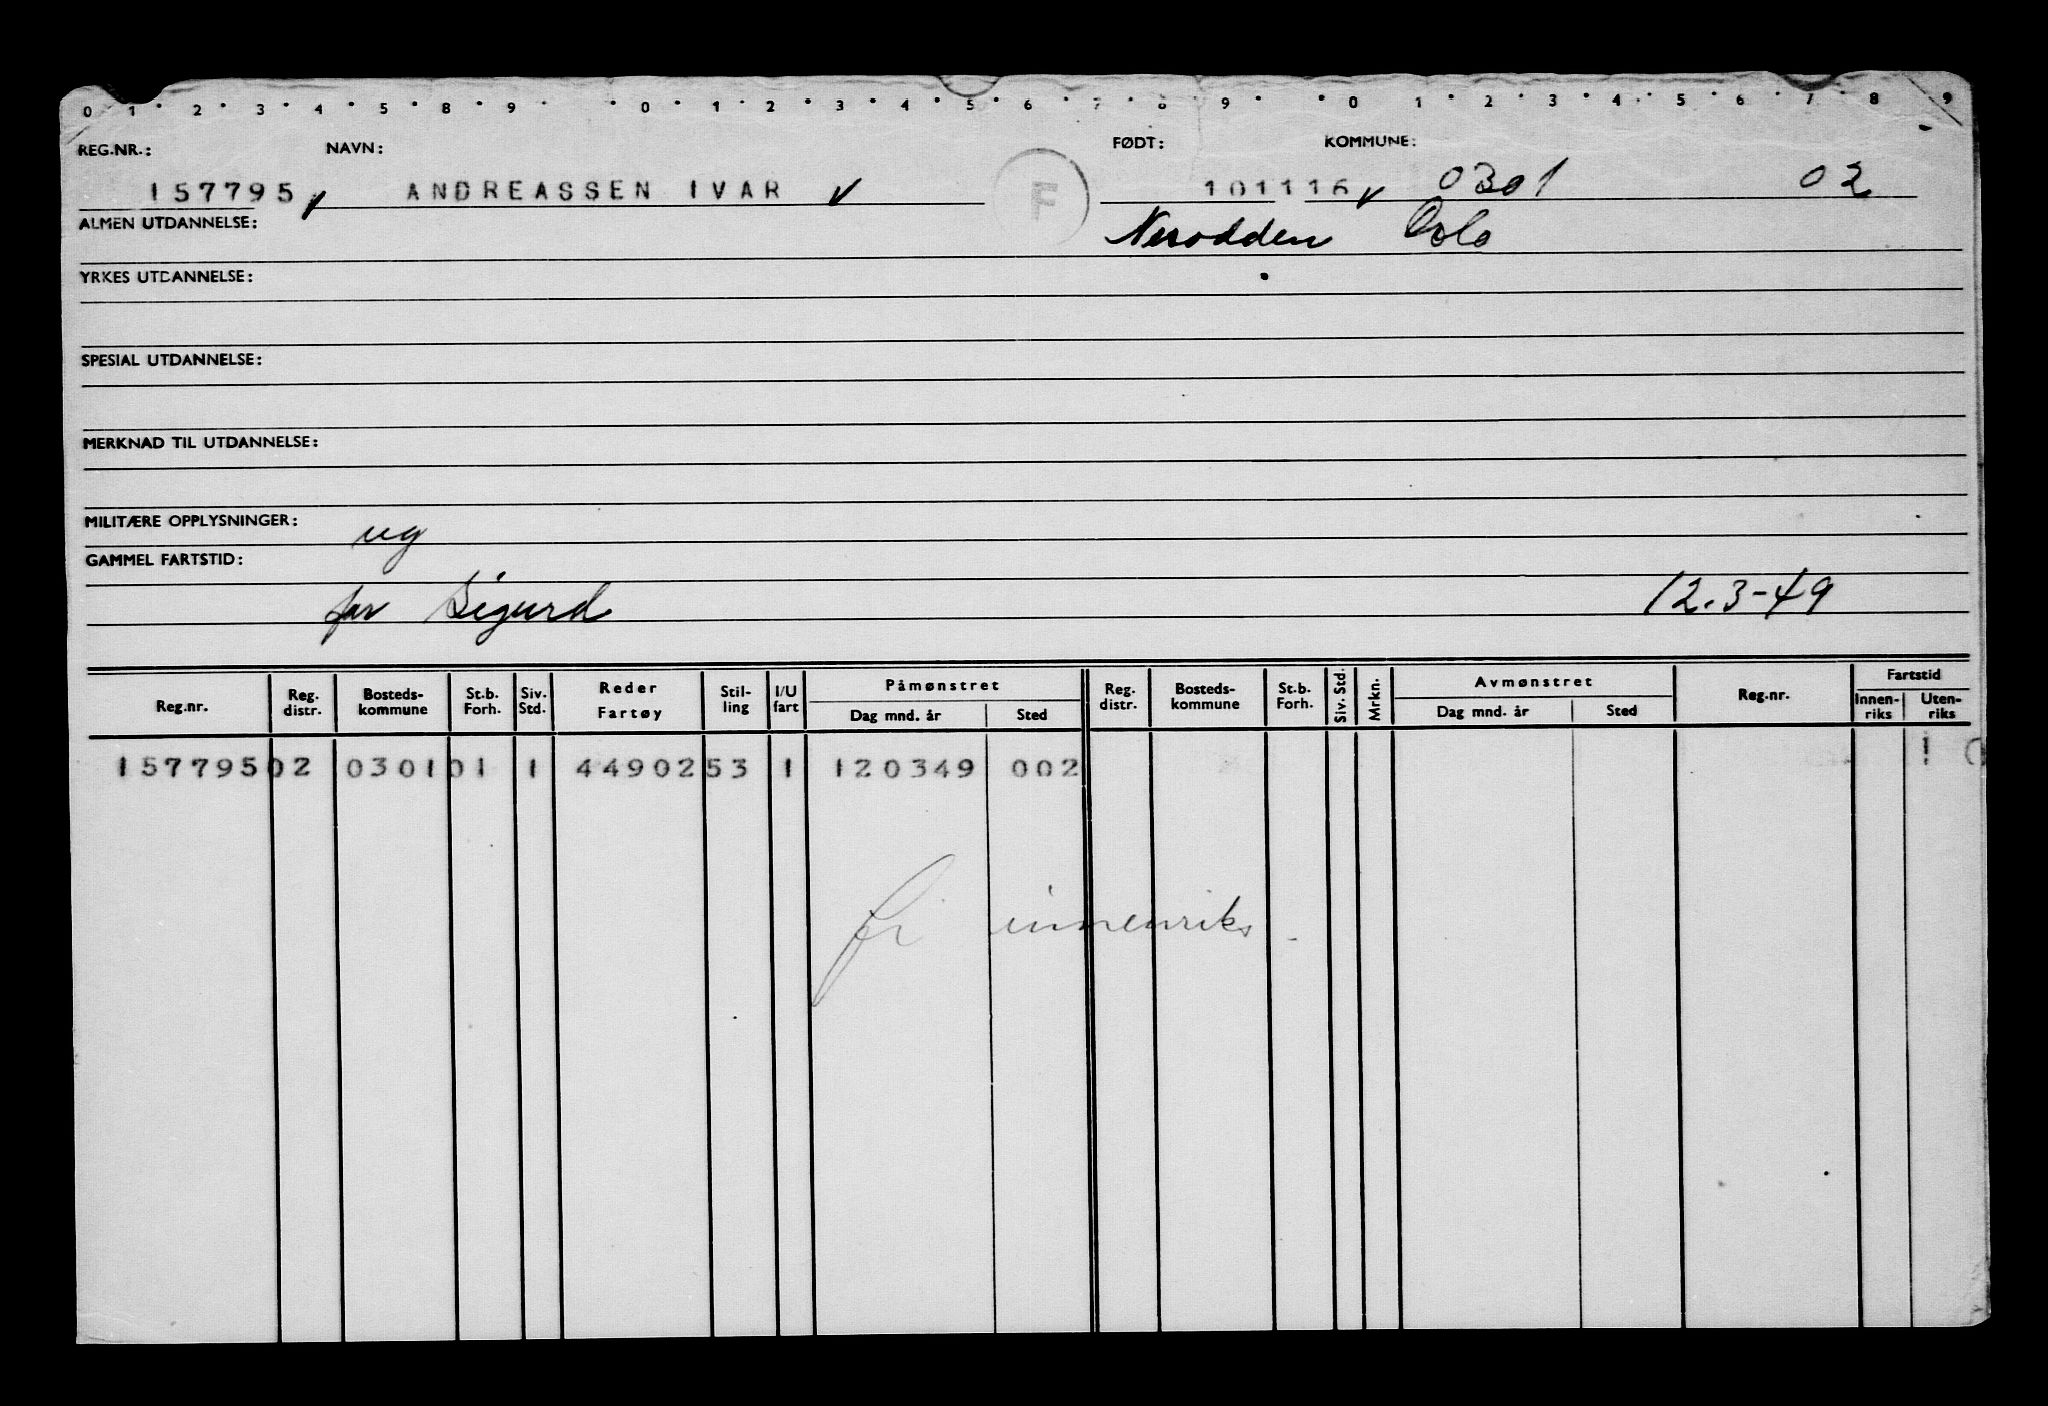 0 1 2 3 4 5 8 9 0 1 2 3 4 5 6 7 8 9 0 1 2 3 4 5 6 7 8 9
REG.NR.: NAVN: FØDT: KOMMUNE:
157795 ANDREASSEN IVAR F 101116 0301 02
ALMEN UTDANNELSE: Nesodden Oslo
YRKES UTDANNELSE:
SPESIAL UTDANNELSE:
MERKNAD TIL UTDANNELSE:
MILITÆRE OPPLYSNINGER: ug
GAMMEL FARTSTID:
far Sigurd 12.3-49
Reg.nr. Reg. distr. Bosteds-kommune St.b. Forh. Siv. Std. Reder Fartøy Stil-ling I/U fart Påmønstret Dag mnd. år Sted Reg. distr. Bosteds-kommune St.b. Forh. Siv. Std. Mrkn. Avmønstret Dag mnd. år Sted Reg.nr. Fartstid Innen-riks Uten-riks
157795 02 0301 01 1 44902 53 1 120349 002 1 0
innenriks